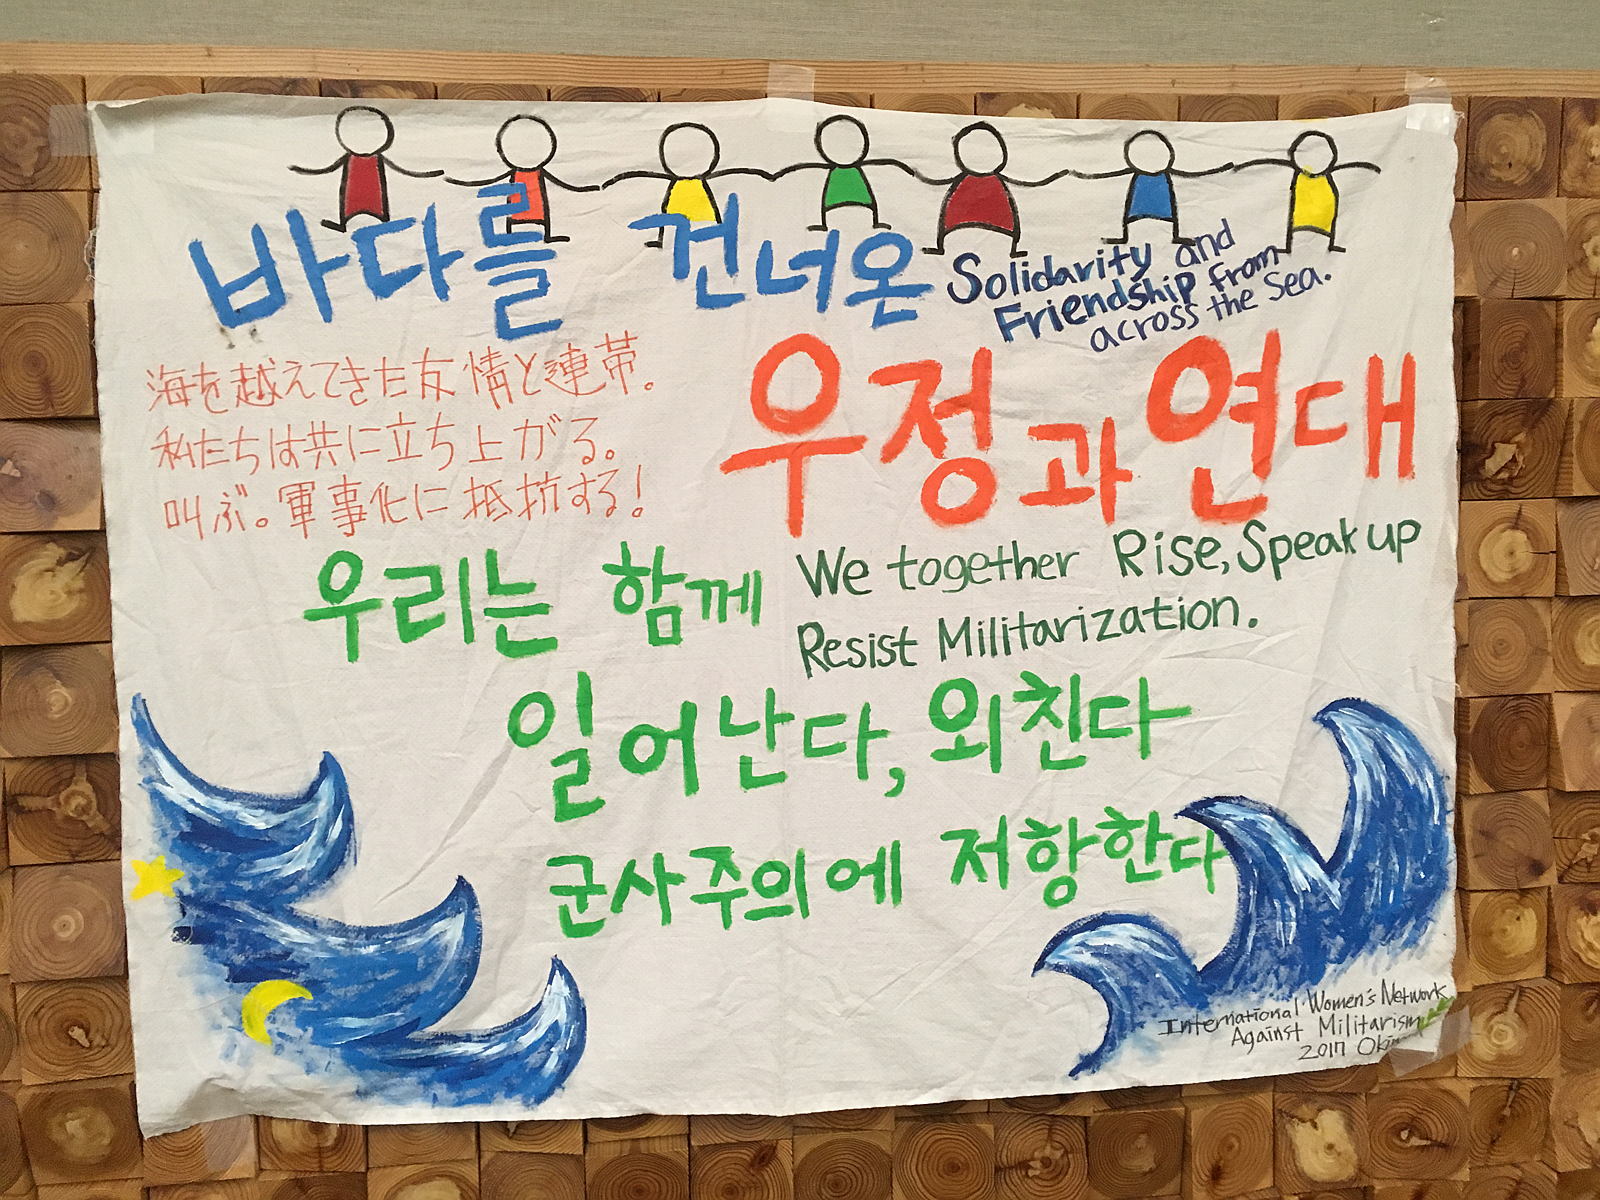 바다를 건너온
Solidarity and
Friendship from
across the Sea.
海を越えてきた友情と連帯。
私たちは共に立ち上がる。
叫ぶ。軍事化に抵抗する!
우정과 연대
우리는 함께
We together Rise, Speak up
Resist Militarization.
일어난다, 외친다
군사주의에 저항한다
International Women's Network
Against Militarism
2017